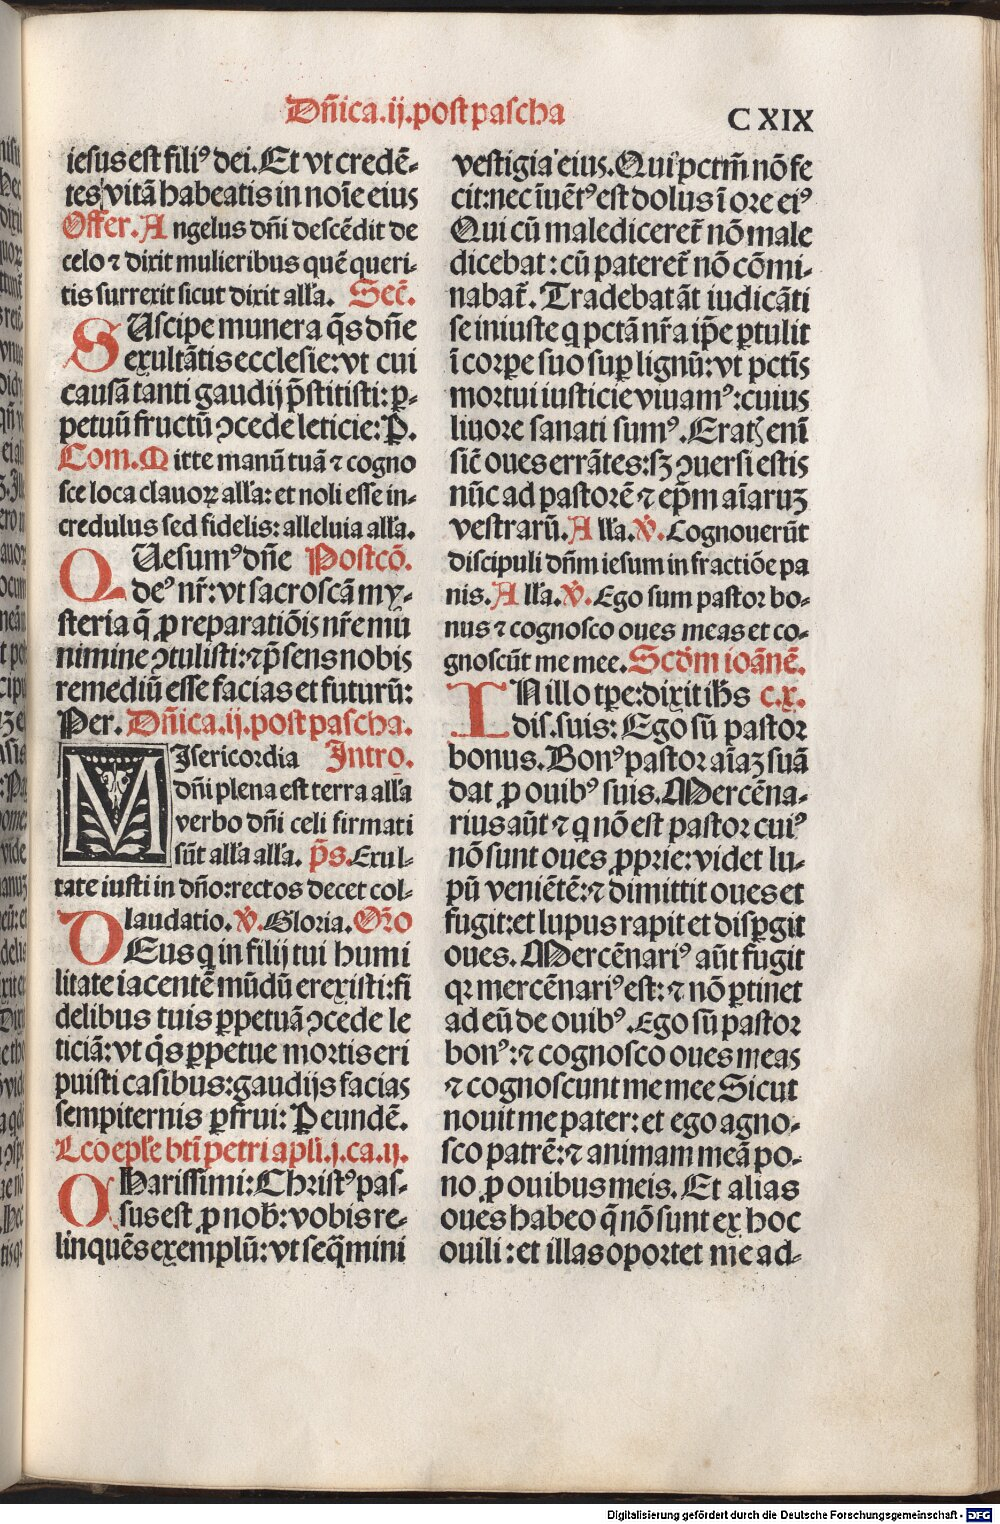 Dñica.ij.post pascha
CXIX
iesus est filiꝰ dei. Et vt credē-
tes vitā habeatis in noīe eius
Offer. Angelus dñi descēdit de
celo ⁊ dixit mulieribus quē queri-
tis surrexit sicut dixit alľa. Secr̄.
SUscipe munera q̄s dñe
exultātis ecclesie: vt cui
causā tanti gaudij p̄stitisti: ꝑ-
petuū fructū ꝯcede leticie: P.
Com. Mitte manū tuā ⁊ cogno
sce loca clauoꝝ alľa: et noli esse in-
credulus sed fidelis: alleluia alľa.
QUesumꝰ dñe Postcō.
deꝰ nr̄: vt sacroscā my-
steria q̄ ꝓ reparatiōis nr̄e mu
nimine ꝯtulisti: ⁊ p̄sens nobis
remediū esse facias et futurū:
Per. Dñica.ij.post pascha.
MIsericordia Intro.
dñi plena est terra alľa
verbo dñi celi firmati
sūt alľa alľa. p̄s. Exul-
tate iusti in dño: rectos decet col-
laudatio. v̄. Gloria. Orō
DEus q in filij tui humi
litate iacentē mūdū erexisti: fi
delibus tuis ꝑpetuā ꝯcede le
ticiā: vt q̄s ꝑpetue mortis eri
puisti casibus: gaudijs facias
sempiternis ꝑfrui: P eundē.
Lco epľe bti petri apli.j.ca.ij.
CHarissimi: Christꝰ pas-
sus est ꝓ nob̄: vobis re-
linquēs exemplū: vt seq̄mini
vestigia eius. Qui pctm̄ nō fe
cit: nec īuētꝰ est dolus ī ore eiꝰ
Qui cū malediceret̄ nō male
dicebat: cū pateret̄ nō cōmi-
nabat̄. Tradebat āt iudicāti
se iniuste q pctā nr̄a ip̄e ꝑtulit
ī corpe suo suꝑ lignū: vt pctīs
mortui iusticie viuamꝰ: cuius
liuore sanati sumꝰ. Erat; enī
sic̄ oues errātes: sꝫ ꝯuersi estis
nūc ad pastorē ⁊ ep̄m aīaruꝫ
vestrarū. Alľa. v̄. Cognouerūt
discipuli dñm iesum in fractiōe pa
nis. Alľa. v̄. Ego sum pastor bo-
nus ⁊ cognosco oues meas et co-
gnoscūt me mee. Scdm̄ ioānē.
IN illo tꝑe: dixit ih̄s c.x.
dis. suis: Ego sū pastor
bonus. Bonꝰ pastor aīaꝫ suā
dat ꝓ ouibꝰ suis. Mercēna-
rius aūt ⁊ q nō est pastor cuiꝰ
nō sunt oues ꝓprie: videt lu-
pū veniētē: ⁊ dimittit oues et
fugit: et lupus rapit et disꝑgit
oues. Mercēnariꝰ aūt fugit
qꝛ mercēnariꝰ est: ⁊ nō ꝑtinet
ad eū de ouibꝰ. Ego sū pastor
bonꝰ: ⁊ cognosco oues meas
⁊ cognoscunt me mee Sicut
nouit me pater: et ego agno-
sco patrē: ⁊ animam meā po-
no ꝓ ouibus meis. Et alias
oues habeo q̄ nō sunt ex hoc
ouili: et illas oportet me ad-
Digitalisierung gefördert durch die Deutsche Forschungsgemeinschaft - DFG